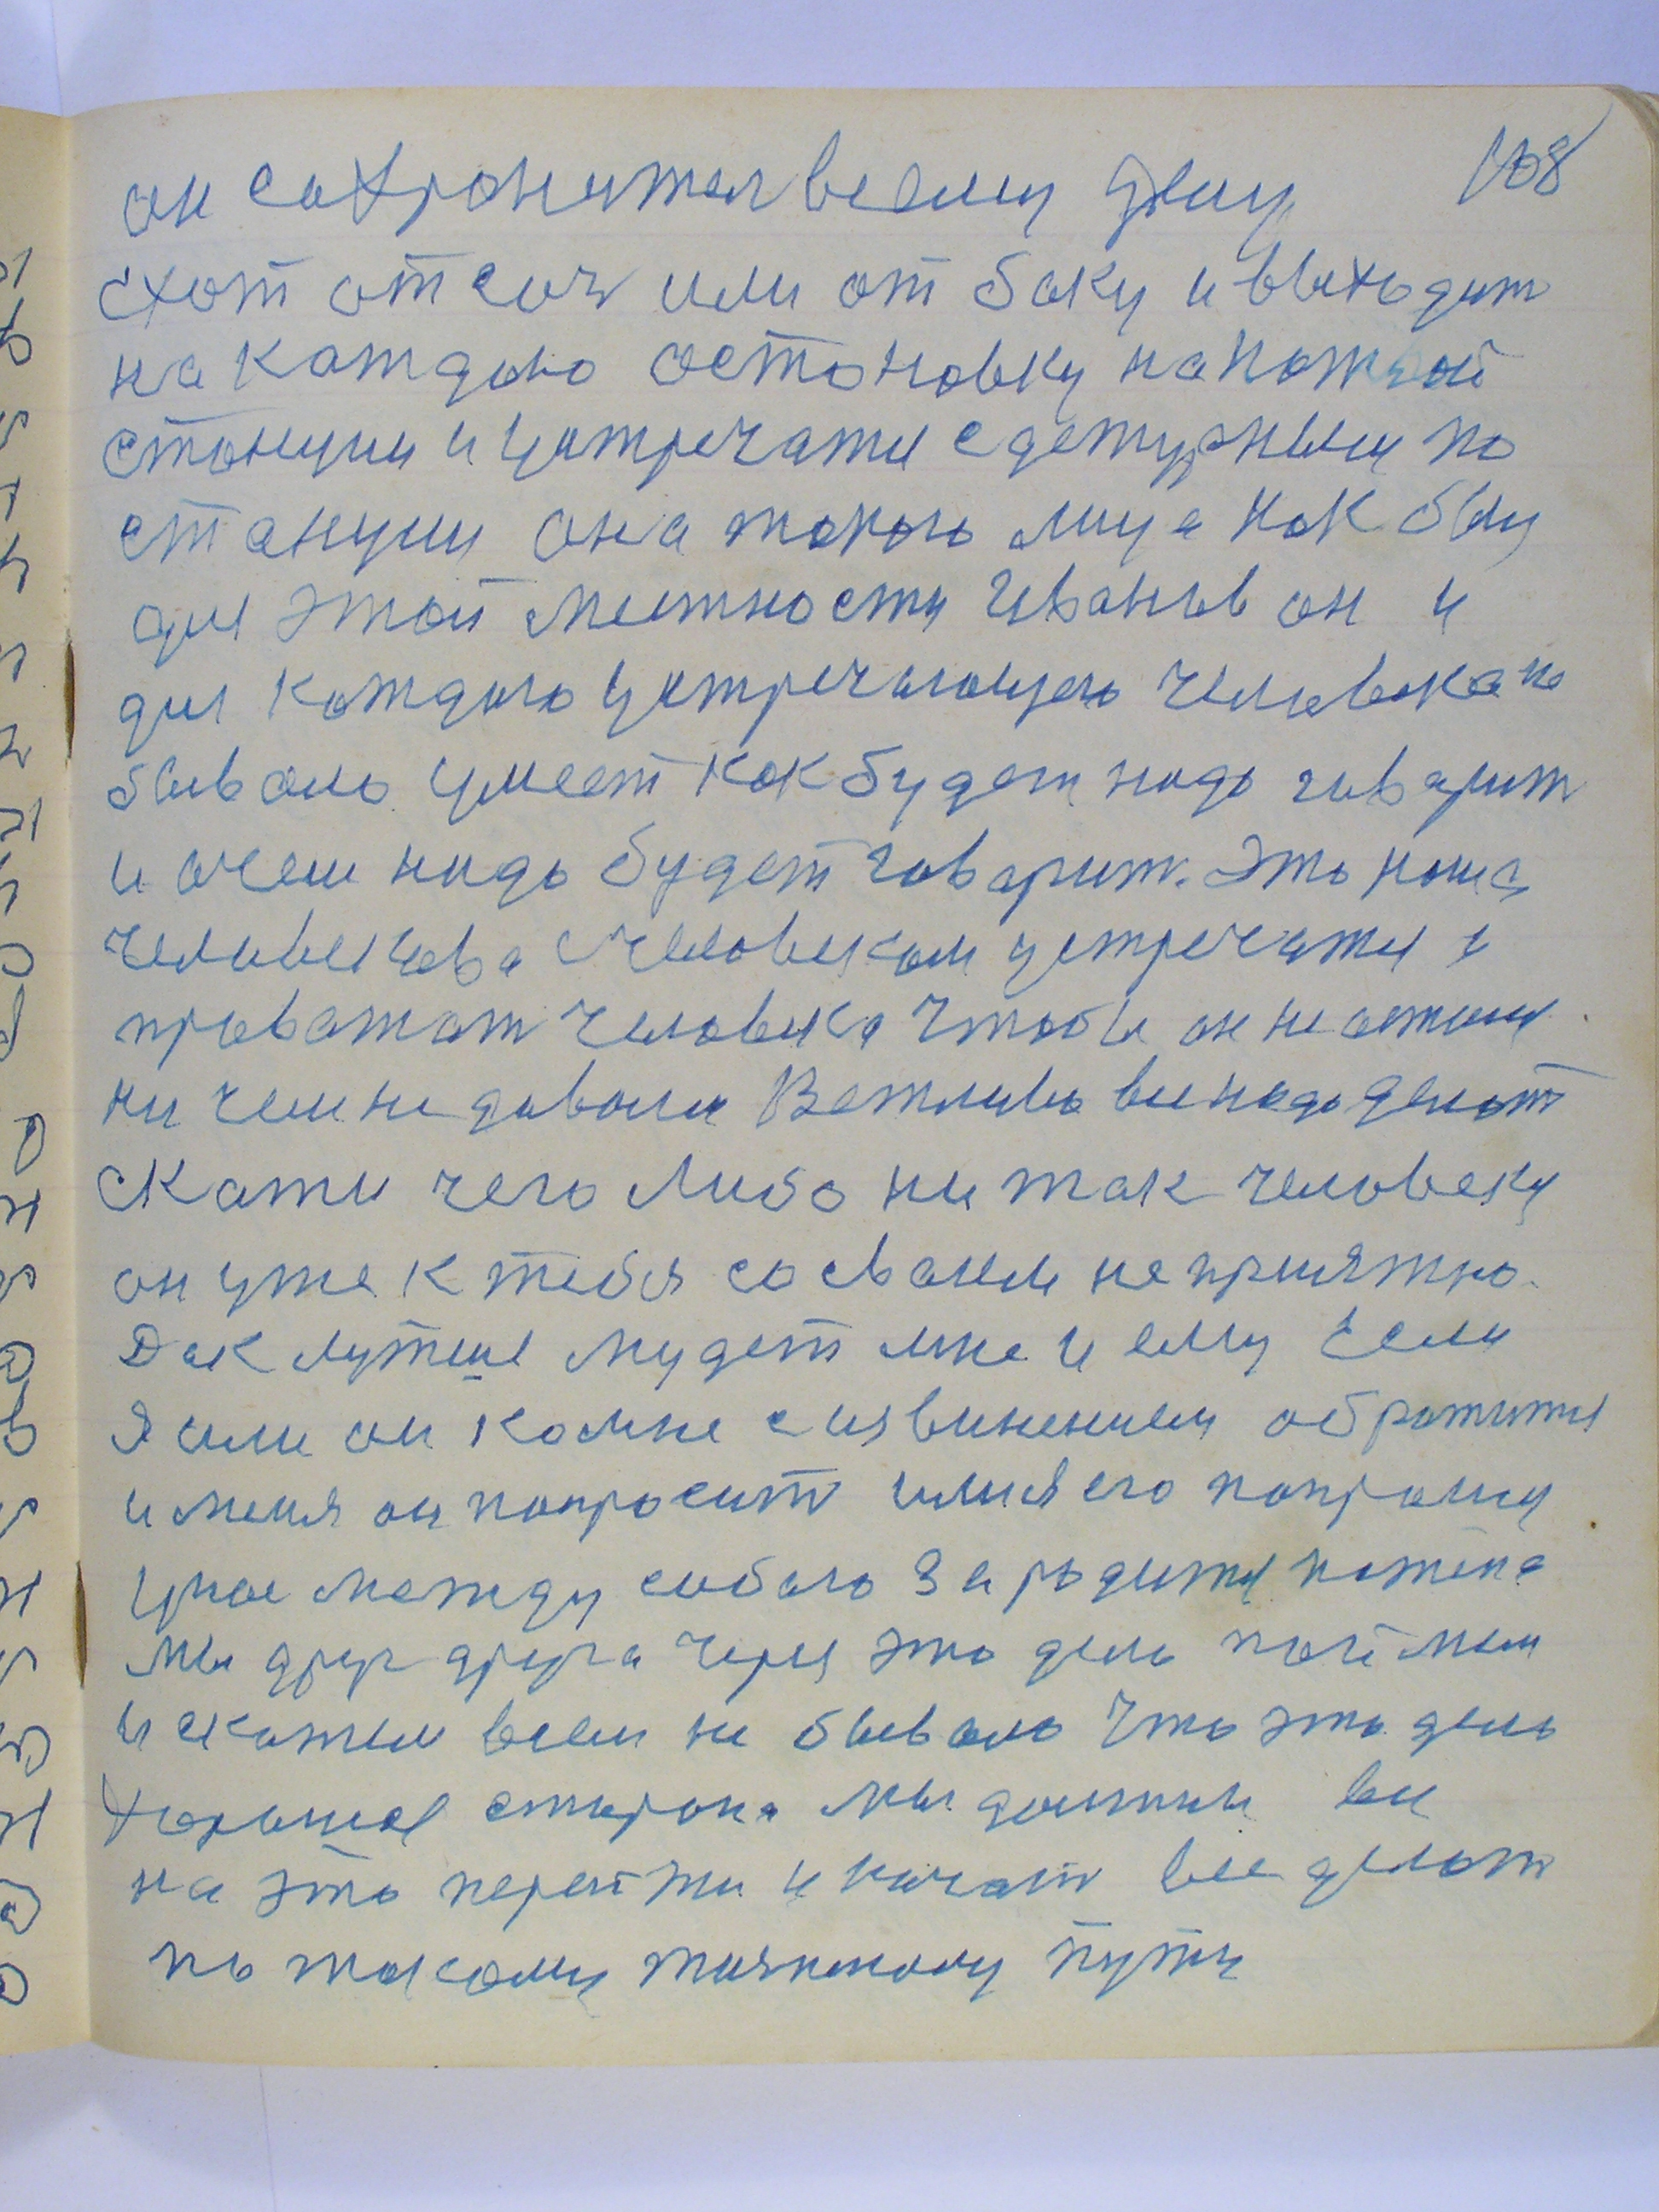 108
он сохронител всему делу
схот от соч или от баку и выходит
на каждою остоновку на кождой
станции и устречатся с дежурными по
станции она токого лица как бы
для этой местности Иванов он и
для каждого устречающего человека не
бывало умеет как будет надо говарит
и очем надо будет говарит. Это наша
человека с человеком устречатся и
проважат человека чтобы он не
ни чем не довали Вежливо все надо делат
скажи чего либо ни так человеку
он уже к тебя со своим неприятно.
Дак лутше мудет мне и ему Если
я или он комне с извинением обратится
и меня он попросит или я его попрошу
у нас между собою зародится
мы друг друга через это дело поймем
и скажем всем не бывало что это дело
хорошая старона мы должны все
на это перейти и начат все делат
по такому пути